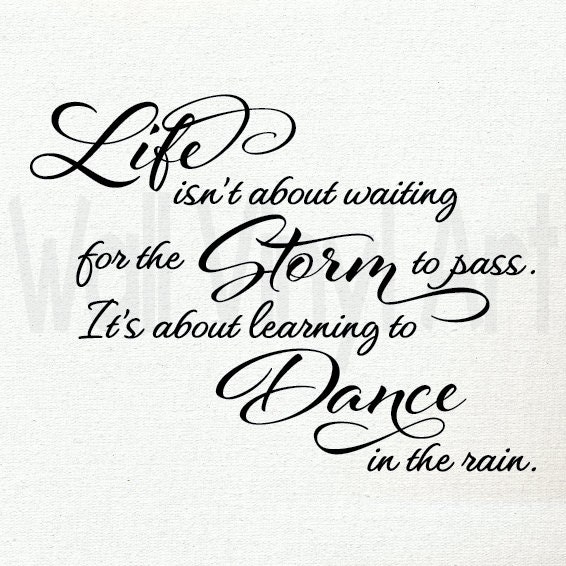 Life
isn't about waiting
for the Storm to pass.
It's about learning to
Dance
in the rain.
Wall Vinyl Art